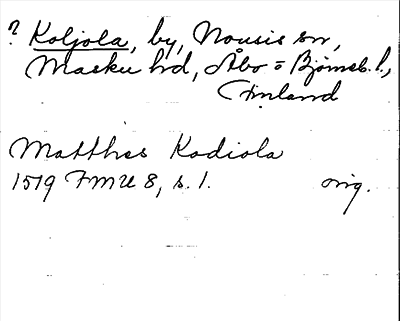 ? Koljola, by, Nousis sn,
Masku hd, Åbo = Björneb. l.,
Finland
Matthes Kodiola
1519 FMU 8, s. 1. orig.